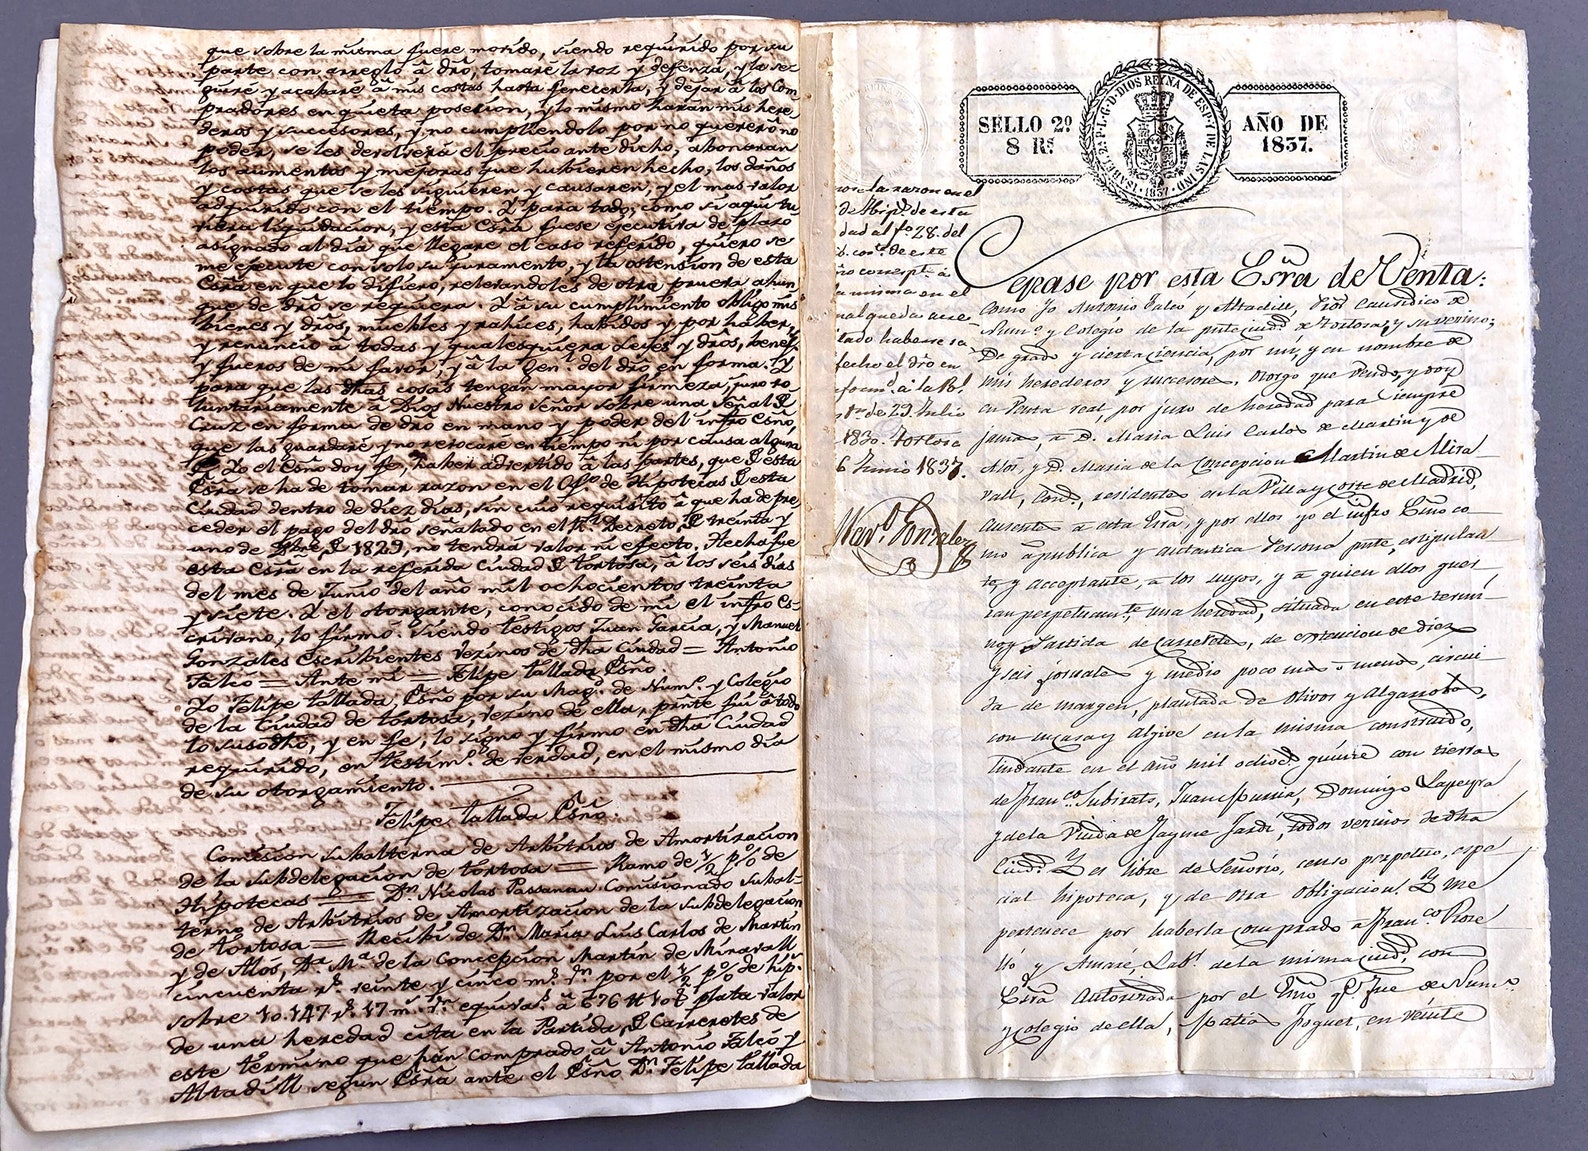 que sobre la misma fuere movido, siendo requirido por su
parte con arreglo â dr̃o, tomaré la voz y defenza, y la se
guiré y acabaré â mis costas hasta fenecerla, y dejar â los Com
pradores en quieta posecion, y lo mismo harán mis here
deros y succesores, y no cumpliendolo por no querer ô no
poder, se les devolverá el precio ante dicho, abonarán
los aumentos y mejoras que hubieren hecho, los daños
y costas que se les siguieren y causaren, y el mas valor
adquirido con el tiempo. Y para todo, como si aqui tu
viera liquidacion, y esta Esr̃a fuese ejecutiva de plazo
asignado al dia que llegare el caso referido, quiero se
me ejecute con solo su juramento, y la ostension de esta
Esr̃a en que lo difiero, relevandoles de otra prueva ahun
que de dr̃o se requiera. Y â su cumplimiento obligo mis
bienes y dr̃os, muebles y rahices, habidos y por haber,
y renuncio â todas y qualesquiera Leyes y dr̃os, benefi
y fueros de mi favor, y â la Gen.l del dr̃o en forma. Y
para que las dhas cosas tengan mayor firmeza, juro vo
luntariamente â Dios Nuestro Señor sobre una señal de
Cruz en forma de dr̃o en mano y poder del infro Esño,
que las guardaré y no revocaré en tiempo ni por causa alguna
Yo el Esño doy fe, haber advertido â las partes, que de esta
Esr̃a se ha de tomar razon en el Ofi.º de Hipotecas de esta
Ciudad dentro de diez dias, sin cuio requisito â que ha de pre
ceder el pago del dr̃o señalado en el Rl. Decreto de treinta y
uno de Xbre de 1829, no tendrá valor ni efecto. Hecha fue
esta Esr̃a en la referida Ciudad de Tortosa, â los seis dias
del mes de Junio del año mil ochocientos treinta
y siete. Y el otorgante, conocido de mi el infro Es
crivano, lo firmó. Siendo testigos Juan Garcia, y Manuel
Gonzales escribientes vezinos de dha Ciudad = Antonio
Falcó = Ante mi = Felipe Tallada Esño.
Yo Felipe Tallada, Esño por su Mag.d de Num.º y Colegio
de la Ciudad de Tortosa, vezino de ella, prnte fui â todo
lo susodho, y en fe, lo signo y firmo en dha Ciudad
requirido, en testim.º de verdad, en el mismo dia
de su otorgamiento.
Felipe Tallada Esño
Comision Subalterna de Arbitrios de Amortizacion
de la Subdelegacion de Tortosa = Ramo de ½ p% de
Hipotecas = Dn. Nicolas Passanau Comisionado Subal-
terno de Arbitrios de Amortizacion de la Subdelegacion
de Tortosa = Recibi de Dn. Maria Luis Carlos de Martin
y de Alós, Da. Ma. de la Concepcion Martin de Miravall
cincuenta rs. veinte y cinco ms. vn. por el ½ p% de hip.s
sobre 10.147 rs. 17 ms. vn. equiva.s â 676 plata valor
de una heredad cita en la Partida de Carretes de
este termino que hán comprado â Antonio Falcó y
Altadill segun Esr̃a ante el Esño Dn. Felipe Tallada
SELLO 2º
8 Rs
ISABEL 2ª P. L. G. D. DIOS REYNA DE ESP. Y DE LAS IND.
1837
AÑO DE
1837.
la razon en el
de Hip.s de esta
dad al fº 28. del
b. corr.te de este
ño correspt. â
la misma en el
ual queda ano
tado haberse sa
fecho el dr̃o en
form.e â la Rl.
de 29 Julio
1830. Tortosa
6 Junio 1837.
Gonzalez
Sepase por esta Esr̃a de Venta:
Como Yo Antonio Falcó y Altadill, Causidico de
Num.º y Colegio de la prnte ciud.d de Tortosa, y su vezino;
De grado y cierta ciencia, por mi, y en nombre de
mis herederos y succesores, otorgo que vendo, y doy
en Venta real, por juro de heredad para siempre
jamas, a D. Maria Luis Carlos de Martin y de
Alos, y D. Maria de la Concepcion Martin de Mira-
vall, residentes en la Villa y Corte de Madrid,
ausentes a esta Esr̃a, y por ellos yo el infro Esño co
mo â publica y autentica Persona prnte, estipulan
te, y acceptante, a los suyos, y a quien ellos quer
ran perpetuam.te, una heredad, situada en este termi-
no, y Partida de Carretes, de extencion de diez
y seis jornales y medio poco mas o menos, circui-
da de margen, plantada de Olivos y Algarrobos,
con su casa y algive en la misma construido,
lindante en el año mil ochoc.s quinze con tierras
de Fran.co Subirats, Juan, Domingo Lapeyra
y de la Viuda de Jayme Jardí, todos vecinos de dha
Ciud.d Y es libre de Señorío, censo perpetuo, espe
cial hipoteca, y de otra obligacion. Y me
pertenece por haberla comprado a Fran.co Rose
lló y Amaré, Lab.r de la misma ciud.d, con
Esr̃a autorizada por el Esño q.e fue de Num.º
y colegio de ella, Matias Foguet, en veinte